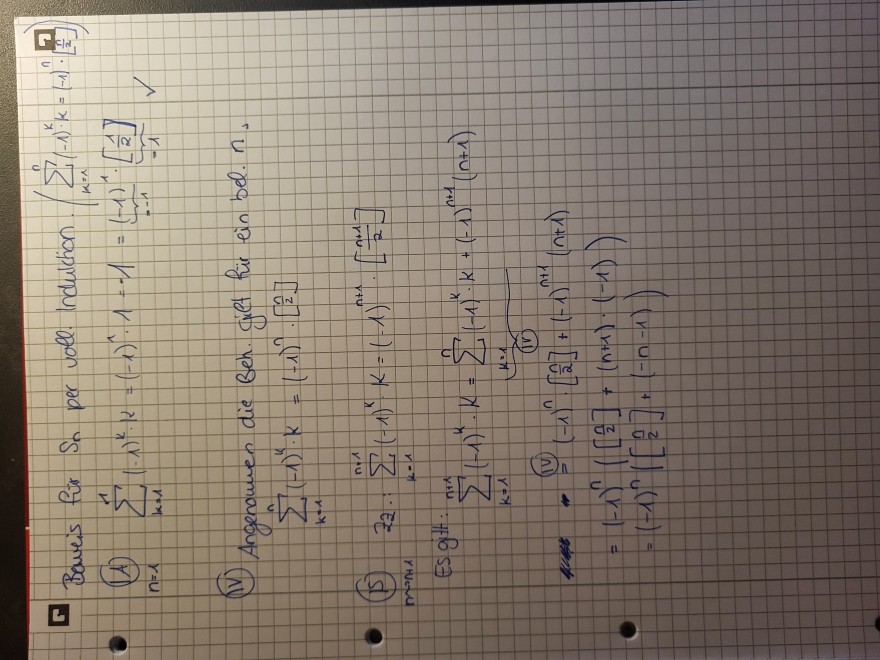 Beweis für Sn per voll. Induktion. ( ∑_{k=1}^{n} (-1)^k · k = (-1)^n · [n/2] )
(IA) n=1 ∑_{k=1}^{1} (-1)^k · k = (-1)^1 · 1 = -1 = (-1)^1 · [1/2] ✓
= -1 = 1
(IV) Angenommen die Beh. gilt für ein bel. n,
∑_{k=1}^{n} (-1)^k · k = (-1)^n · [n/2]
(IS) n→n+1 Zz.: ∑_{k=1}^{n+1} (-1)^k · k = (-1)^{n+1} · [n+1/2]
Es gilt: ∑_{k=1}^{n+1} (-1)^k · k = ∑_{k=1}^{n} (-1)^k · k + (-1)^{n+1} (n+1)
(IV)
(IV) = (-1)^n · [n/2] + (-1)^{n+1} (n+1)
= (-1)^n ( [n/2] + (n+1) · (-1) )
= (-1)^n ( [n/2] + (-n-1) )